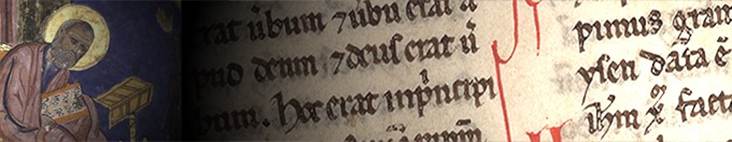 rat ůbum ⁊ ůbū erat a
pud deum ⁊ deus erat ů
bum. Hoc erat inpͥncipi
pimus gram
ysen data ē
ihm xͦ facta